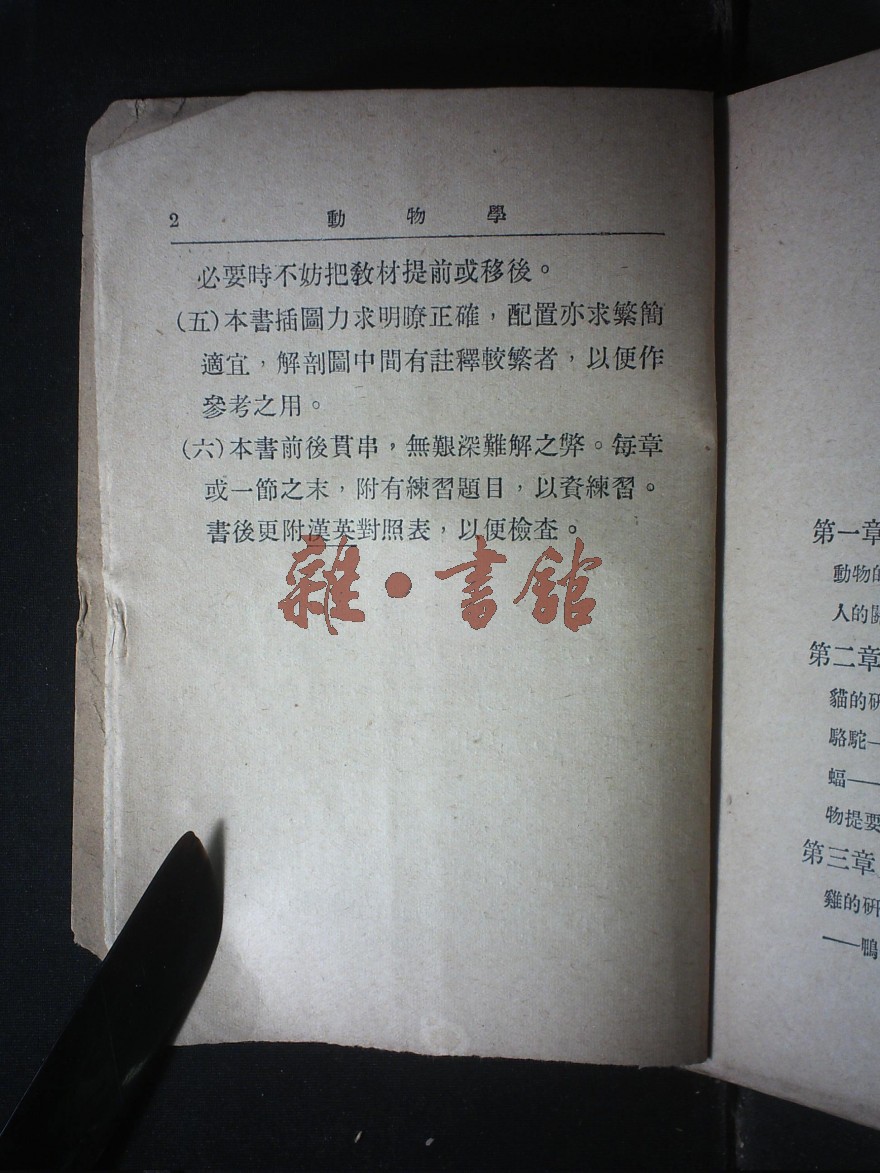 2 動物學
必要時不妨把教材提前或移後。
(五)本書插圖力求明瞭正確，配置亦求繁簡
適宜，解剖圖中間有註釋較繁者，以便作
參考之用。
(六)本書前後貫串，無艱深難解之弊。每章
或一節之末，附有練習題目，以資練習。
書後更附漢英對照表，以便檢查。
雜·書館
第一章
動物的
人的關
第二章
貓的研
駱駝—
蝠——
物提要
第三章
雞的研
——鴨